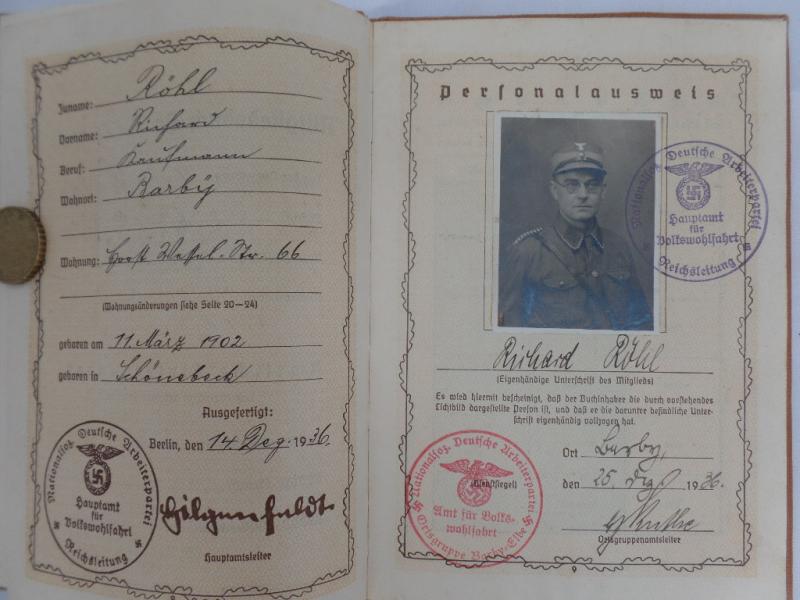 Zuname: Röhl
Vorname: Richard
Beruf: Kaufmann
Wohnort: Barby
Wohnung: Horst Wessel-Str. 66
(Wohnungsänderungen siehe Seite 20–24)
geboren am 11. März 1902
geboren in Schönebeck
Ausgefertigt:
Berlin, den 14. Dez. 1936
Nationalsoz. Deutsche Arbeiterpartei
Hauptamt
für
Volkswohlfahrt
Reichsleitung
Hilgenfeldt
Hauptamtsleiter
Personalausweis
Nationalsoz. Deutsche Arbeiterpartei
Hauptamt
für
Volkswohlfahrt
Reichsleitung
Richard Röhl
(Eigenhändige Unterschrift des Mitglieds)
Es wird hiermit bescheinigt, daß der Buchinhaber die durch vorstehendes
Lichtbild dargestellte Person ist, und daß er die darunter befindliche Unter-
schrift eigenhändig vollzogen hat.
Nationalsoz. Deutsche Arbeiterpartei
(Dienstsiegel)
Amt für Volks-
wohlfahrt
Ortsgruppe Barby-Elbe
Ort Barby,
den 25. Dez. 1936.
Ortsgruppenamtsleiter